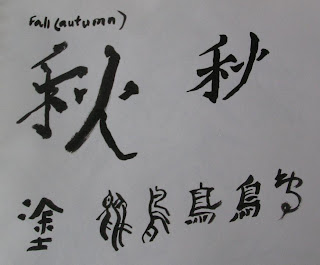 Fall (autumn)
秋 秒
塗 鳥 鳥